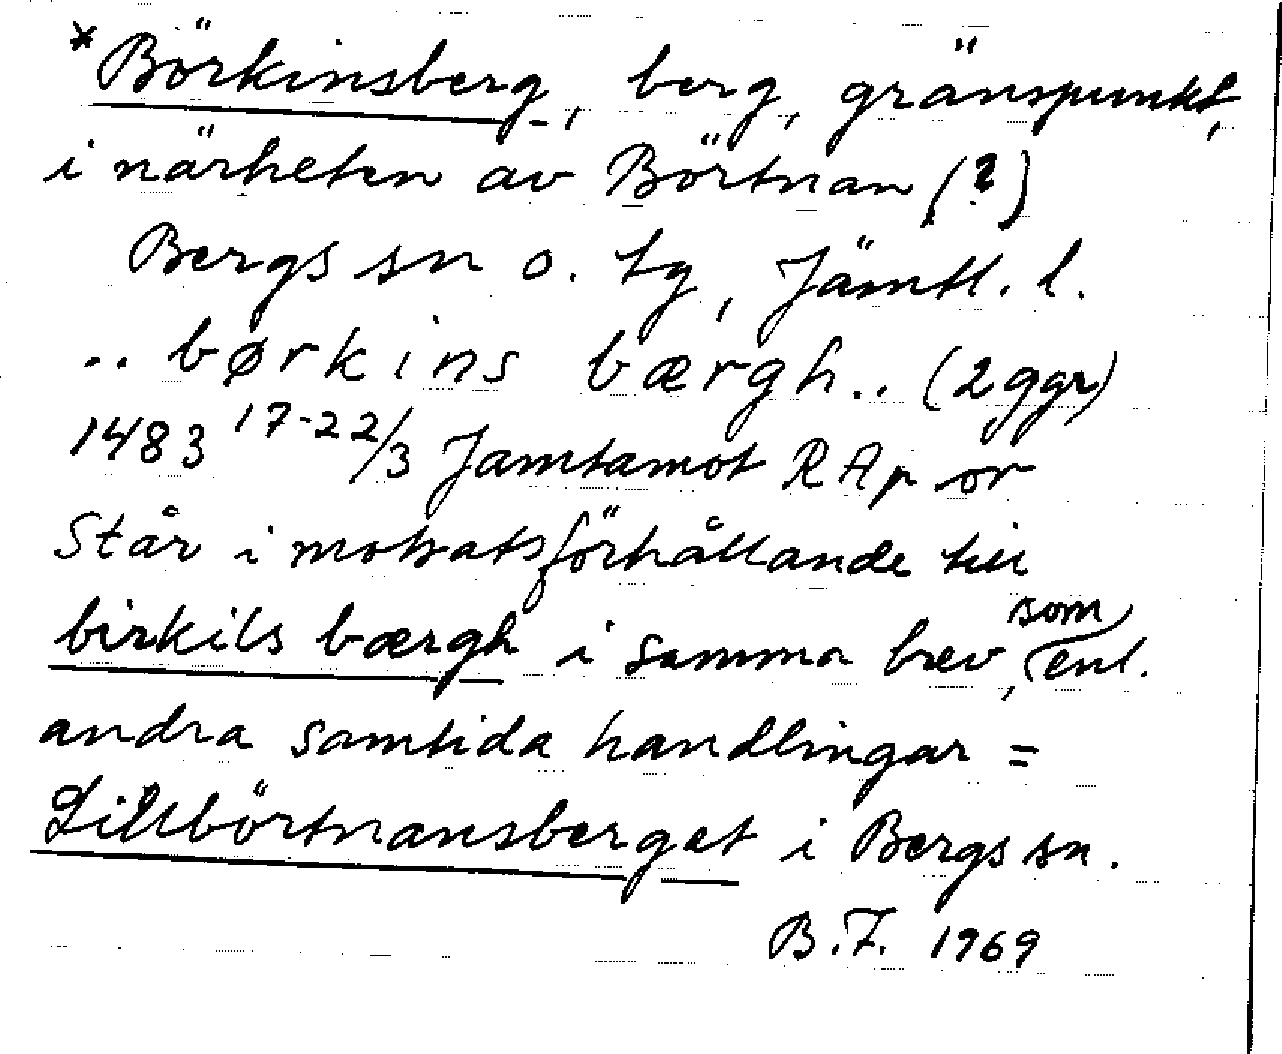 *Börkinsberg, berg, gränspunkt,
i närheten av Börtnan (?)
Bergs sn o. tg, Jämtl. l.
.. børkins bærgh.. (2 ggr)
1483 17-22/3 Jamtamot RAp or
Står i motsatsförhållande till
birkils bærgh i samma brev, som enl.
andra samtida handlingar =
Lillbörtnansberget i Bergs sn.
B.F. 1969